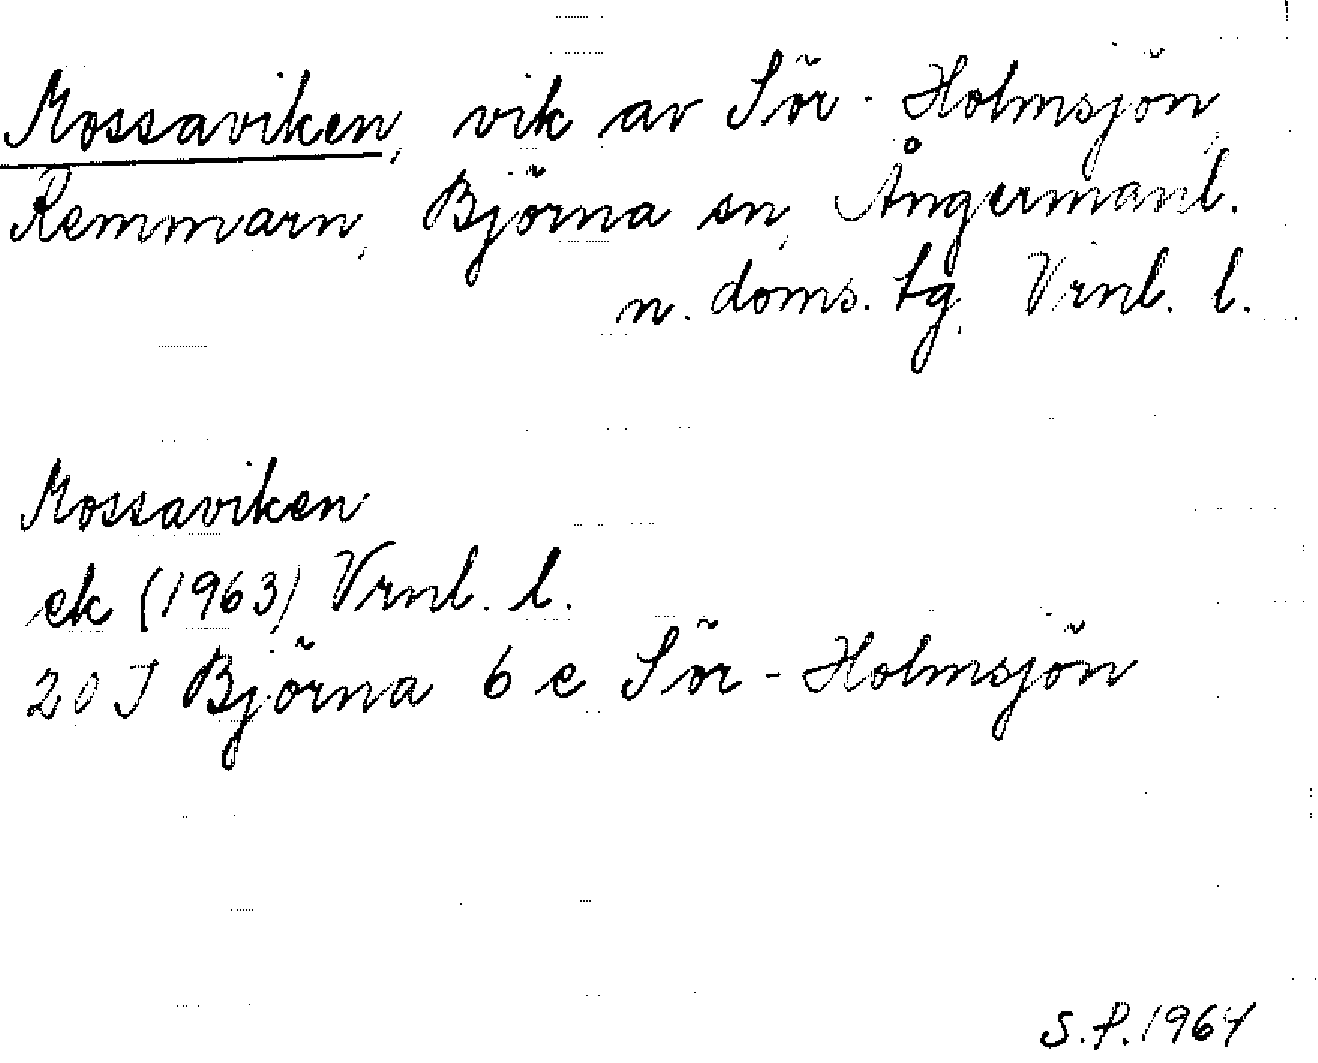 Mossaviken, vik av Sör-Holmsjön,
Remmarn, Björna sn, Ångermanl.
n. doms. tg, Vrnl. l.
Mossaviken
ek (1963) Vrnl. l.
20 J Björna 6 e Sör-Holmsjön
S.P. 1964